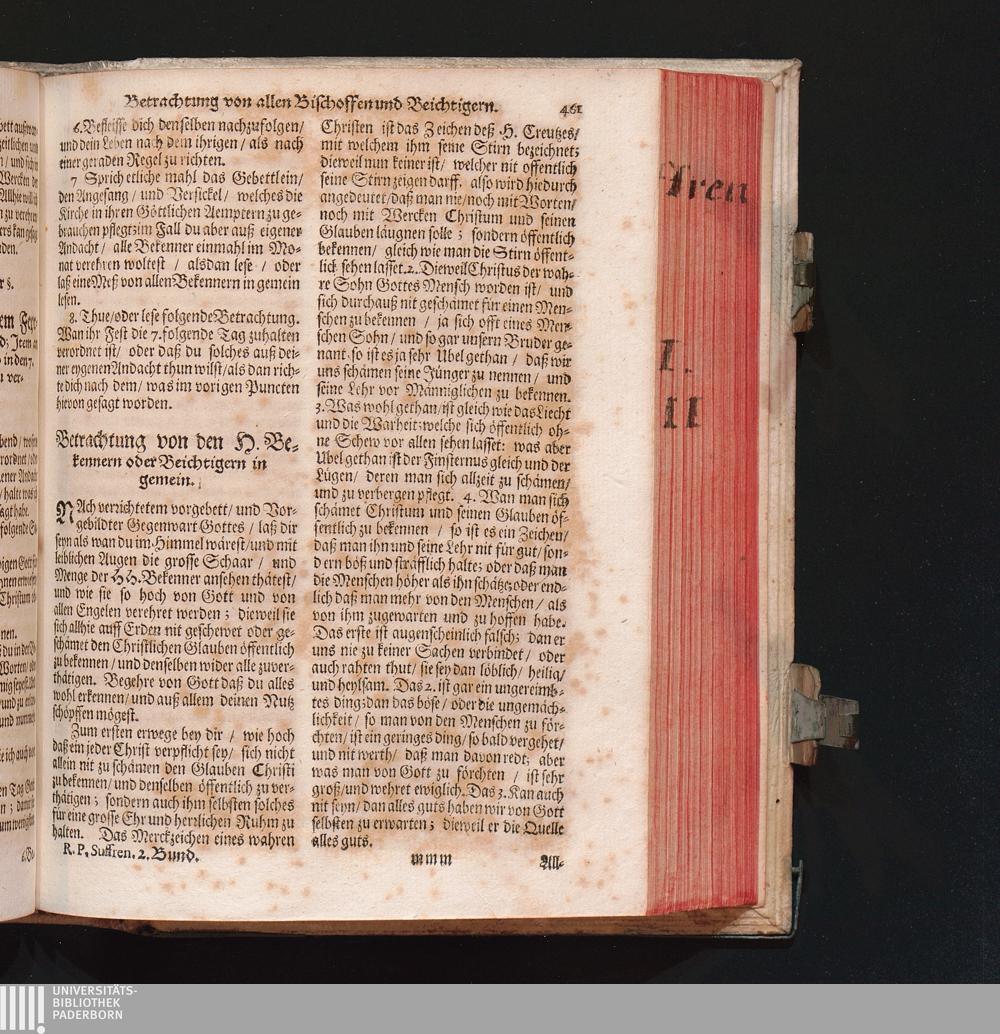 Betrachtung von allen Bischoffen und Beichtigern.
461
6. Befleisse dich denselben nachzufolgen/
und dein Leben nach dem ihrigen/ als nach
einer geraden Regel zu richten.
7 Sprich etliche mahl das Gebettlein/
den Angesang/ und Versickel/ welches die
Kirche in ihren Göttlichen Aemptern zu ge-
brauchen pflegt; im Fall du aber auß eigener
Andacht/ alle Bekenner einmahl im Mo-
nat verehren woltest / alsdan lese / oder
laß eine Meß von allen Bekennern in gemein
lesen.
8. Thue/oder lese folgende Betrachtung.
Wan ihr Fest die 7. folgende Tag zuhalten
verordnet ist/ oder daß du solches auß dei-
ner eygenen Andacht thun wilst/als dan rich-
te dich nach dem/ was im vorigen Puncten
hievon gesagt worden.
Betrachtung von den H. Be-
kennern oder Beichtigern in
gemein.
NAch verrichtetem vorgebett/ und Vor-
gebildter Gegenwart Gottes / laß dir
seyn als wan du im Himmel wärest/und mit
leiblichen Augen die grosse Schaar / und
Menge der HH. Bekenner ansehen thätest/
und wie sie so hoch von Gott und von
allen Engelen verehret werden ; dieweil sie
sich allhie auff Erden nit geschewet oder ge-
schämet den Christlichen Glauben öffentlich
zu bekennen/ und denselben wider alle zuver-
thätigen. Begehre von Gott daß du alles
wohl erkennen/ und auß allem deinen Nutz
schöpffen mögest.
Zum ersten erwege bey dir / wie hoch
daß ein jeder Christ verpflicht sey/ sich nicht
allein nit zu schämen den Glauben Christi
zu bekennen/ und denselben öffentlich zu ver-
thätigen ; sondern auch ihm selbsten solches
für eine grosse Ehr und herzlichen Ruhm zu
halten. Das Merckzeichen eines wahren
R. P. Suffren. 2. Bund.
Christen ist das Zeichen deß H. Creutzes/
mit welchem ihm seine Stirn bezeichnet;
dieweil nun keiner ist/ welcher nit offentlich
seine Stirn zeigen darff, also wird hiedurch
angedeutet/daß man nie/noch mit Worten/
noch mit Wercken Christum und seinen
Glauben läugnen solle ; sondern öffentlich
bekennen/ gleich wie man die Stirn öffent-
lich sehen lasset. 2. Dieweil Christus der wah-
re Sohn Gottes Mensch worden ist/ und
sich durchauß nit geschämet für einen Men-
schen zu bekennen / ja sich offt eines Men-
schen Sohn/ und so gar unsern Bruder ge-
nant. so ist es ja sehr Ubel gethan / daß wir
uns schämen seine Jünger zu nennen/ und
seine Lehr vor Männiglichen zu bekennen.
3. Was wohl gethan/ist gleich wie das Liecht
und die Warheit: welche sich öffentlich oh-
ne Schew vor allen sehen lasset: was aber
Ubel gethan ist der Finsternus gleich und der
Lügen/ deren man sich allzeit zu schämen/
und zu verbergen pflegt. 4. Wan man sich
schämet Christum und seinen Glauben öf-
fentlich zu bekennen / so ist es ein Zeichen/
daß man ihn und seine Lehr nit für gut/ son-
dern böß und sträfflich halte; oder daß man
die Menschen höher als ihn schätze; oder end-
lich daß man mehr von den Menschen/ als
von ihm zugewarten und zu hoffen habe.
Das erste ist augenscheinlich falsch; dan er
uns nie zu keiner Sachen verbindet/ oder
auch rahten thut/ sie sey dan löblich/ heilig/
und heylsam. Das 2. ist gar ein ungereimb-
tes ding; dan das böse/ oder die ungemäch-
lichkeit/ so man von den Menschen zu för-
chten/ ist ein geringes ding/so bald vergehet/
und nit werth/ daß man davon redt; aber
was man von Gott zu förchten / ist sehr
groß/und wehret ewiglich. Das 3. Kan auch
nit seyn/ dan alles guts haben wir von Gott
selbsten zu erwarten ; dieweil er die Quelle
alles guts.
mmm
All-
ffren
I.
II
UNIVERSITÄTS-
BIBLIOTHEK
PADERBORN